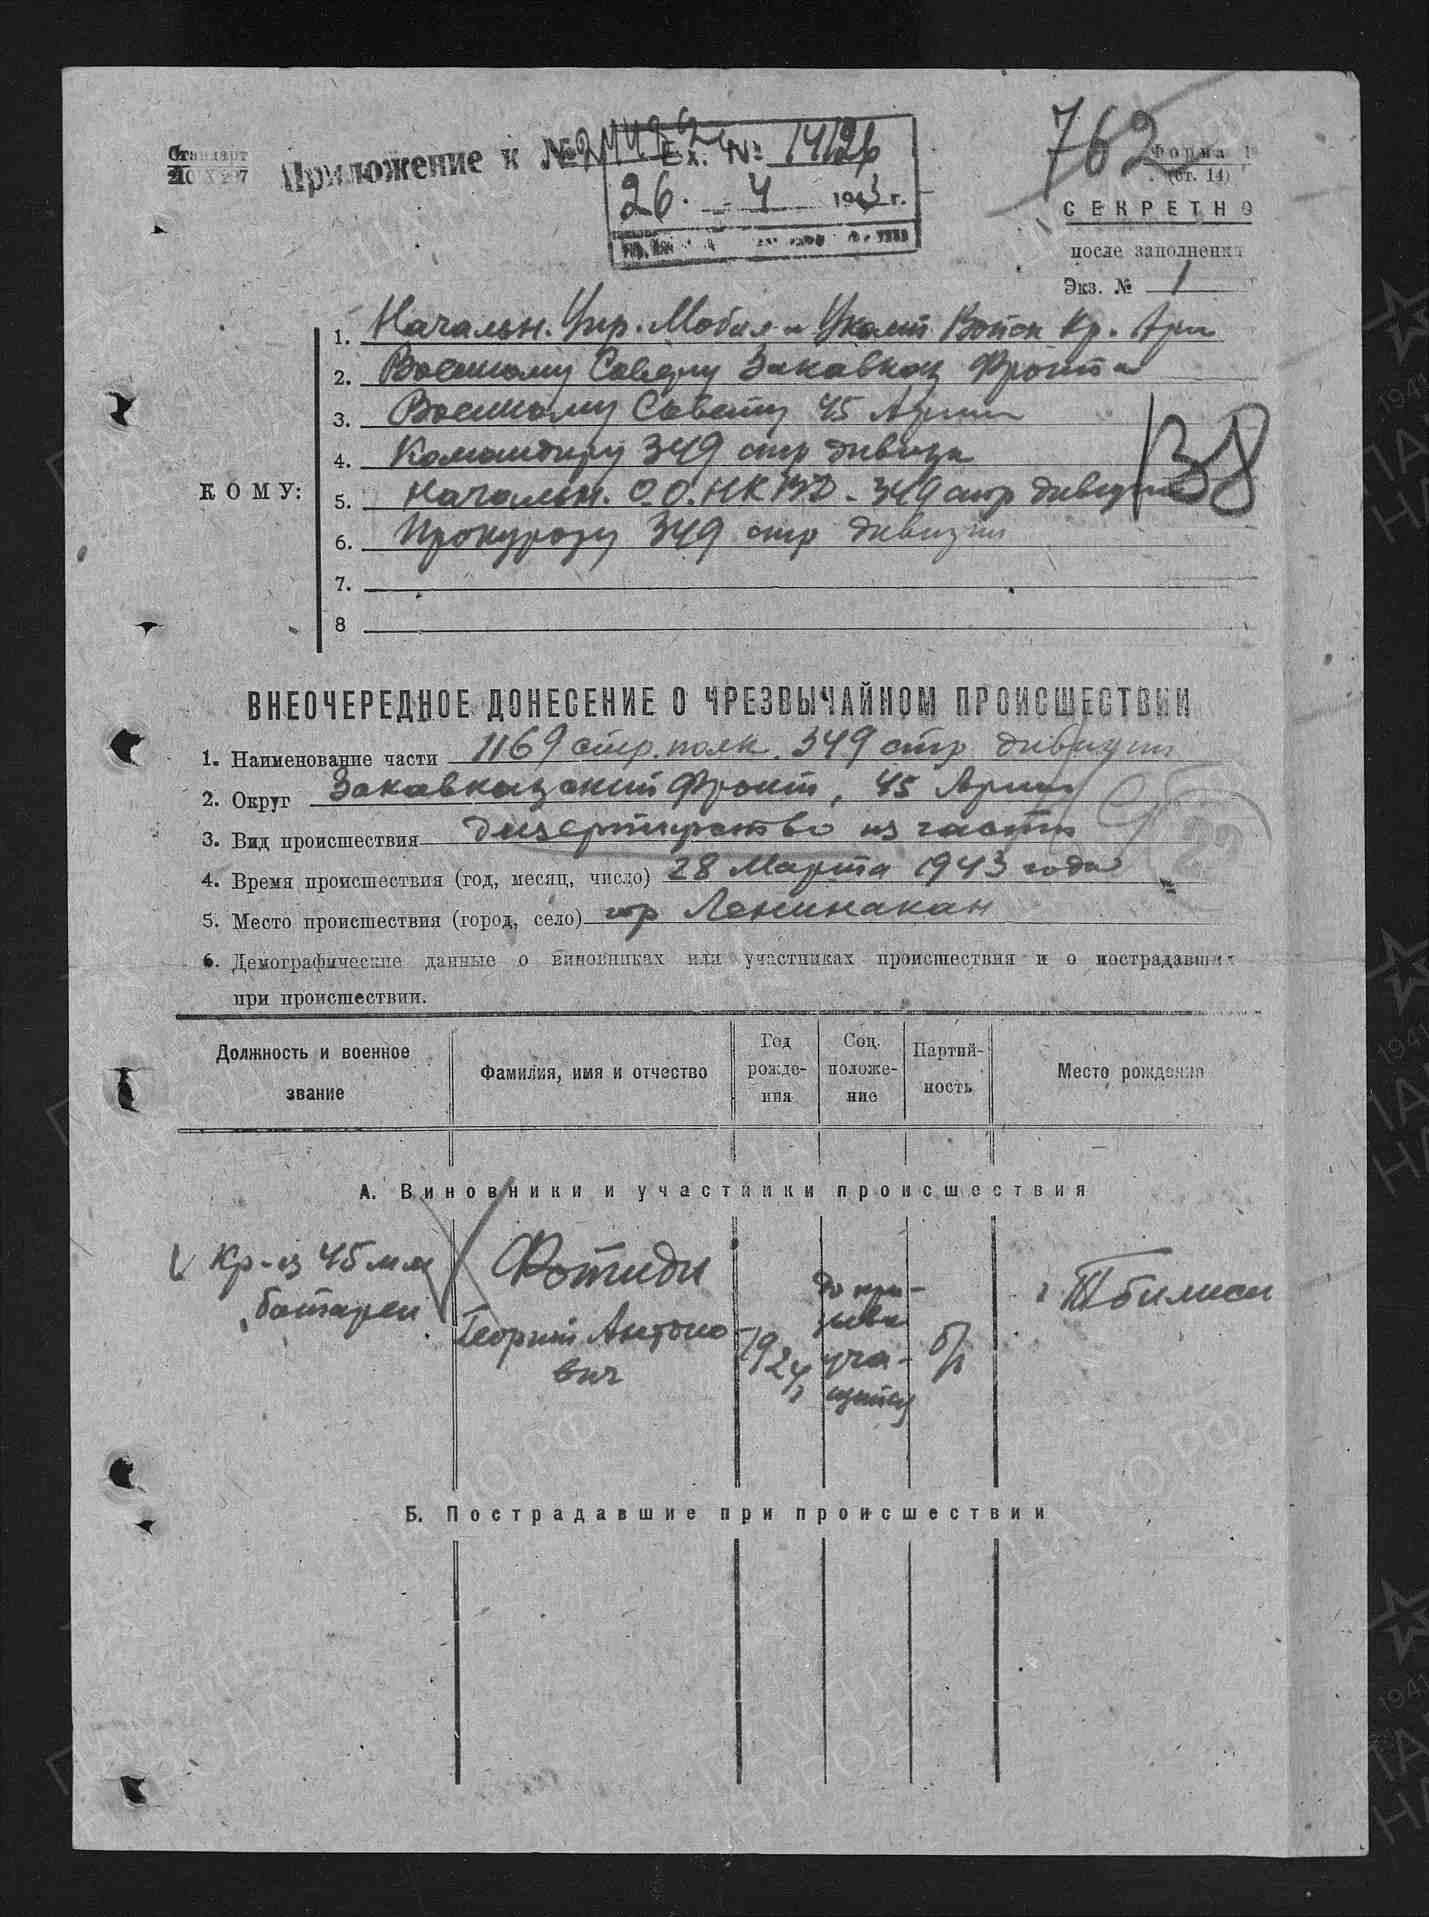 762
Стандарт
210 X 297
Приложение к №
Вх. № 14126
26. 4 1943 г.
Форма 1
(Ст. 14)
СЕКРЕТНО
после заполнения
Экз. № 1
КОМУ:
1. Начальн. Упр. Мобил и Укомп Войск Кр. Арм
2. Военному Совету Закавказ Фронта
3. Военному Совету 45 Армии
4. Командиру 349 стр дивизи
138
5. Начальн. О.О. НКВД - 349 стр дивизии
6. Прокурору 349 стр дивизии
7.
8
ВНЕОЧЕРЕДНОЕ ДОНЕСЕНИЕ О ЧРЕЗВЫЧАЙНОМ ПРОИСШЕСТВИИ
1. Наименование части 1169 стр. полк 349 стр дивизии
2. Округ Закавказский Фронт, 45 Армия
3. Вид происшествия дизертирство из части
22
4. Время происшествия (год, месяц, число) 28 Марта 1943 года
5. Место происшествия (город, село) гор Ленинакан
6. Демографические данные о виновниках или участниках происшествия и о пострадавших
при происшествии.
Должность и военное звание
Фамилия, имя и отчество
Год рождения
Соц. положение
Партийность
Место рождения
А. Виновники и участники происшествия
Кр-ц 45 мм
батареи
Фотиди
Георгий Антоно
вич
1924
до при-
зыва
уча-
щийся
б/п
г Тбилиси
Б. Пострадавшие при происшествии